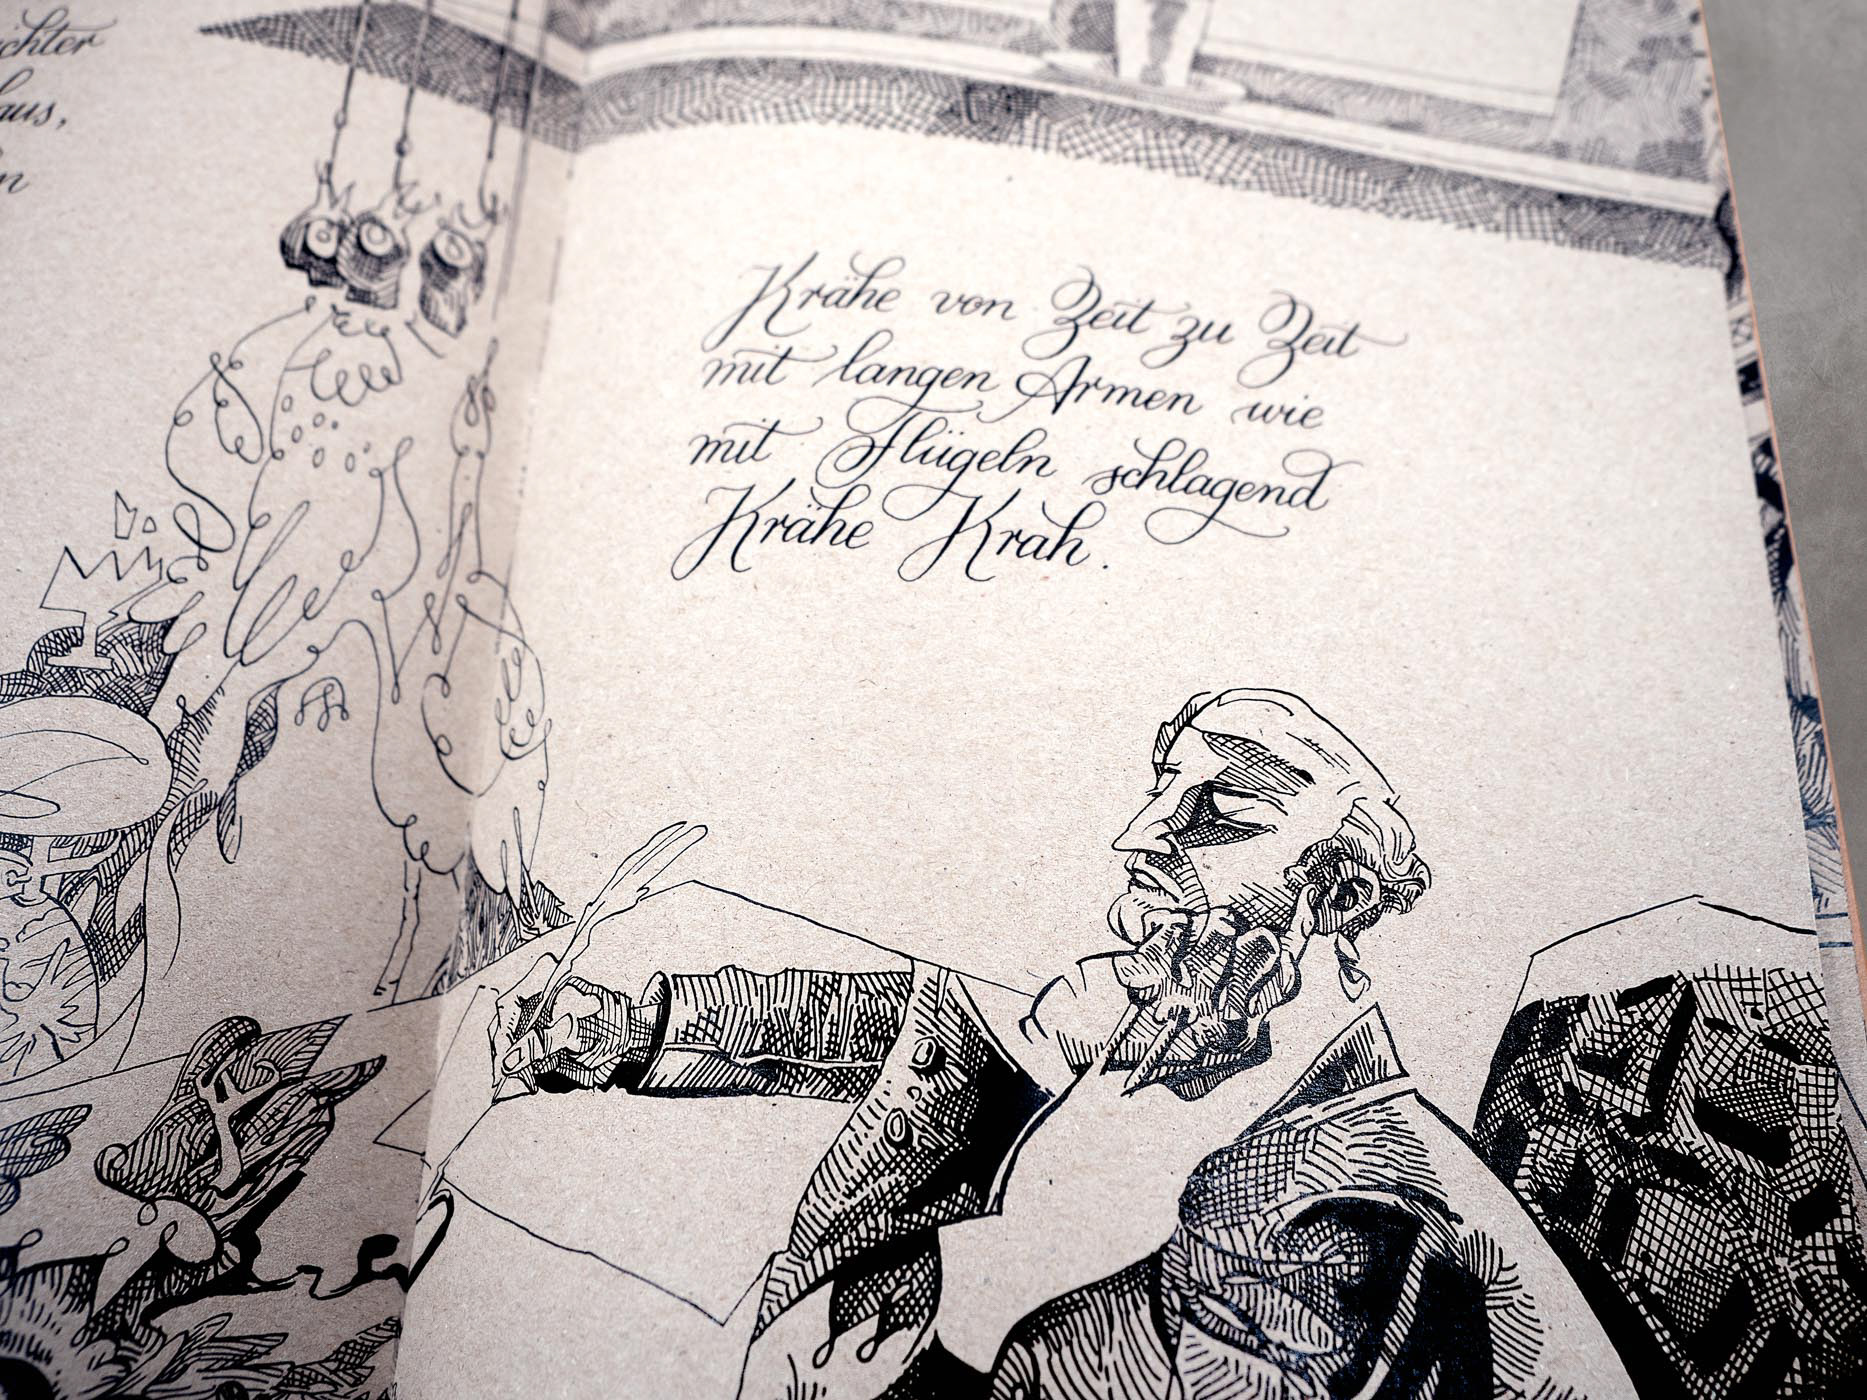 aus,
Krähe von Zeit zu Zeit
mit langen Armen wie
mit Flügeln schlagend
Krähe Krah.